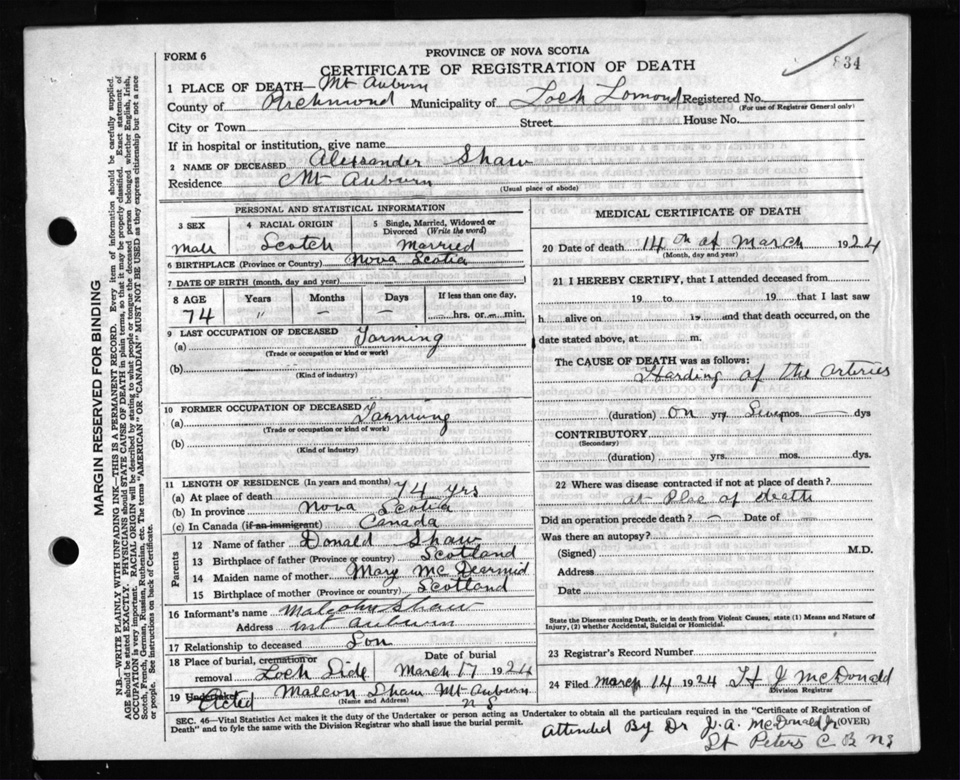 FORM 6
PROVINCE OF NOVA SCOTIA
CERTIFICATE OF REGISTRATION OF DEATH
834
1 PLACE OF DEATH— Mt Auburn
County of Richmond Municipality of Loch Lomond Registered No.
(For use of Registrar General only)
City or Town Street House No.
If in hospital or institution, give name
2 NAME OF DECEASED Alexsander Shaw
Residence Mt Auburn
(Usual place of abode)
PERSONAL AND STATISTICAL INFORMATION
3 SEX Male
4 RACIAL ORIGIN Scotch
5 Single, Married, Widowed or Divorced (Write the word) Married
6 BIRTHPLACE (Province or Country) Nova Scotia
7 DATE OF BIRTH (month, day and year)
8 AGE Years Months Days If less than one day,
74 " — — hrs. or min.
9 LAST OCCUPATION OF DECEASED
(a) Farming
(Trade or occupation or kind of work)
(b)
(Kind of industry)
10 FORMER OCCUPATION OF DECEASED
(a) Farming
(Trade or occupation or kind of work)
(b)
(Kind of industry)
11 LENGTH OF RESIDENCE (In years and months)
(a) At place of death 74 yrs
(b) In province Nova Scotia
(c) In Canada (if an immigrant) Canada
Parents
12 Name of father Donald Shaw
13 Birthplace of father (Province or country) Scotland
14 Maiden name of mother Mary McDearmid
15 Birthplace of mother (Province or country) Scotland
16 Informant's name Malcohn Shaw
Address Mt Auburn
17 Relationship to deceased Son
18 Place of burial, cremation or removal Loch Side Date of burial March 17 1924
19 Undertaker Acted Malcon Shaw Mt Auburn
(Name and Address) N S
MEDICAL CERTIFICATE OF DEATH
20 Date of death 14th of March 1924
(Month, day and year)
21 I HEREBY CERTIFY, that I attended deceased from
19 to 19 that I last saw
h alive on 19 and that death occurred, on the
date stated above, at m.
The CAUSE OF DEATH was as follows:
Harding of the arteries
(duration) on yrs mos. — dys
CONTRIBUTORY
(Secondary)
(duration) yrs. mos. dys.
22 Where was disease contracted if not at place of death?
at Plac of death
Did an operation precede death? — Date of —
Was there an autopsy?
(Signed) M.D.
Address
Date
State the Disease causing Death, or in death from Violent Causes, state (1) Means and Nature of Injury, (2) whether Accidental, Suicidal or Homicidal.
23 Registrar's Record Number
24 Filed March 14 1924 H J McDonald
Division Registrar
SEC. 46—Vital Statistics Act makes it the duty of the Undertaker or person acting as Undertaker to obtain all the particulars required in the "Certificate of Registration of
Death" and to fyle the same with the Division Registrar who shall issue the burial permit.
(OVER)
Attended By Dr J. A. McDonald Jr
St Peters C B NS
MARGIN RESERVED FOR BINDING
N.B.—WRITE PLAINLY WITH UNFADING INK—THIS IS A PERMANENT RECORD. Every item of information should be carefully supplied.
AGE should be stated EXACTLY. PHYSICIANS should STATE CAUSE OF DEATH in plain terms, so that it may be properly classified. Exact statement of
OCCUPATION is very important. RACIAL ORIGIN will be described by stating to what people or tongue the deceased person belonged whether English, Irish,
Scotch, French, German, Russian, Ruthenian, etc. The terms "AMERICAN" OR "CANADIAN" MUST NOT BE USED as they express citizenship but not a race
or people. See instructions on back of Certificate.